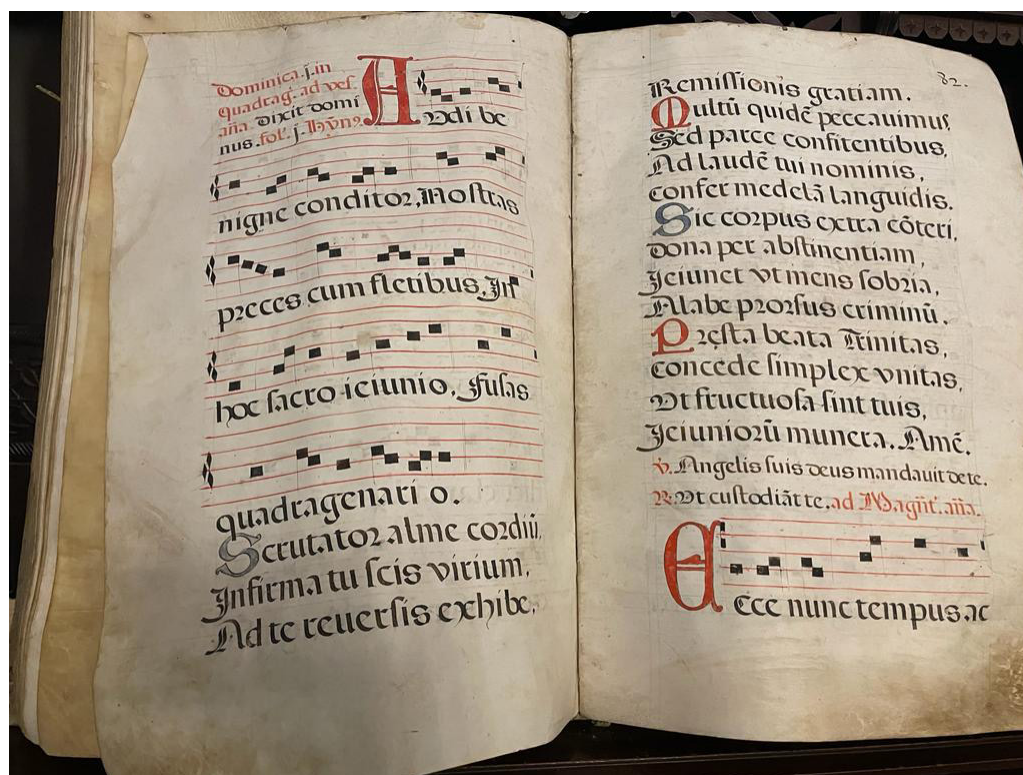 Dominica.j.in
quadrag. ad ves.
aña. Dixit domi
nus. fol. j. hỹn9.
Audi be
nigne conditor, Nostras
preces cum fletibus, In
hoc sacro ieiunio, fusas
quadragenari o.
Scrutator alme cordiū,
Infirma tu scis virium,
Ad te reuersis exhibe,
82.
Remissionis gratiam.
Multū quidē peccauimus,
Sed parce confitentibus,
Ad laudē tui nominis,
confer medelā languidis.
Sic corpus extra cōteri,
Dona per abstinentiam,
Jeiunet vt mens sobria,
A labe prorsus criminū.
Pręsta beata Trinitas,
concede simplex vnitas,
Vt fructuosa sint tuis,
Jeiuniorū munera. Amē.
v. Angelis suis deus mandauit de te.
R. Vt custodiāt te. ad Magñt. aña.
Ecce nunc tempus ac